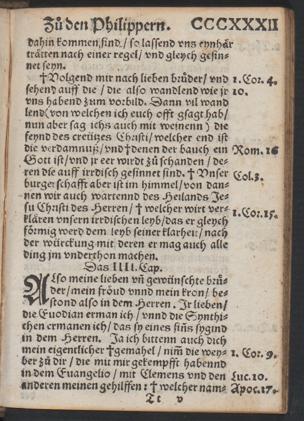 Zů den Philippern. CCCXXXII
dahin kommen sind / so lassend vns eynhår
trätten nach einer regel / vnd gleych gesin-
net seyn.
†Volgend mir nach lieben brůder / vnd 1. Cor. 4.
sehend auff die / die also wandlend wie jr 10.
vns habend zum vorbild. Dann vil wand
lend (von welchen ich euch offt gsagt hab /
nun aber sag ichs auch mit weynenn) die
feynd des creützes Christi / welcher end ist
die verdamnuß / vnd †denen der bauch ein Rom. 16
Gott ist / vnd jr eer wirdt zů schanden / de-
ren die auff irrdisch gesinnet sind. † Vnser Col. 3.
burgerschafft aber ist im himmel / von dan-
nen wir auch wartennd des Heilands Je-
su Christi des Herren / † welcher wirt ver- 1. Cor. 15.
klären vnsern irrdischen leyb / das er gleych
förmig werd dem leyb seiner klarheit / nach
der würckung mit deren er mag auch alle
ding jm vnderthon machen.
Das IIII. Cap.
Also meine lieben vñ gewünschte brů-
der / mein fröud vnnd mein kron / be-
stond also in dem Herren. Jr lieben /
die Euodian erman ich / vnnd die Synthi-
chen ermanen ich / das sy eines siñs sygind
in dem Herren. Ja ich bittenn auch dich
mein eigentlicher †gemahel / nim̃ die wey- 1. Cor. 9.
ber zů dir / die mit mir gekempfft habennd
in dem Euangelio / mit Clemens vnd den Luc. 10.
anderen meinen gehilffen : † welcher nam- Apoc. 17.
Tt v